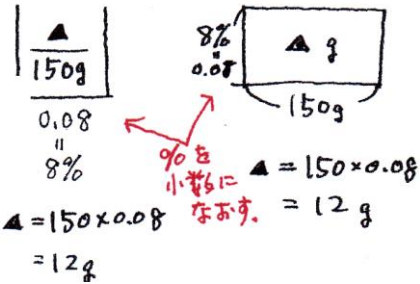 ▲
150g
0.08
=
8%
▲=150×0.08
=12g
8%
=
0.08
▲ g
150g
%を
小数に
なおす。
▲=150×0.08
=12g